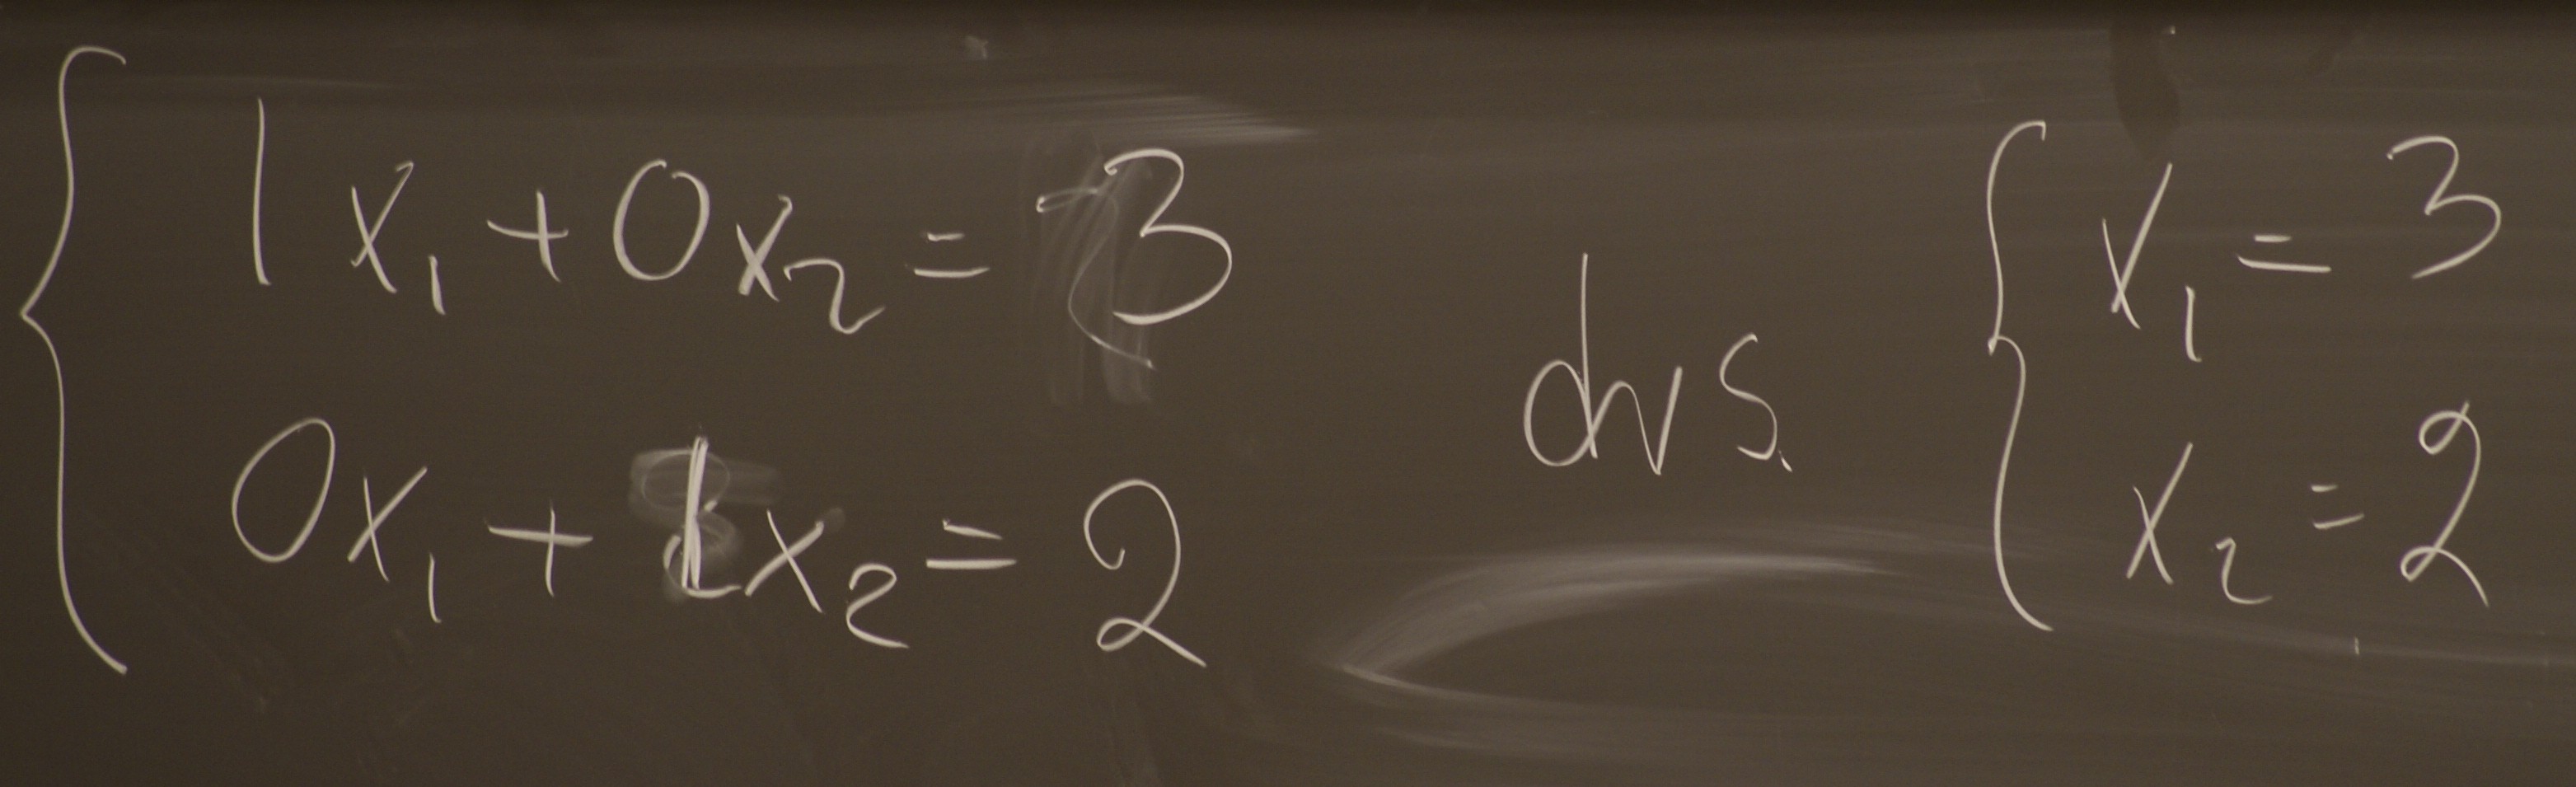 1x₁ + 0x₂ = 3
0x₁ + 1x₂ = 2
dvs.
x₁ = 3
x₂ = 2